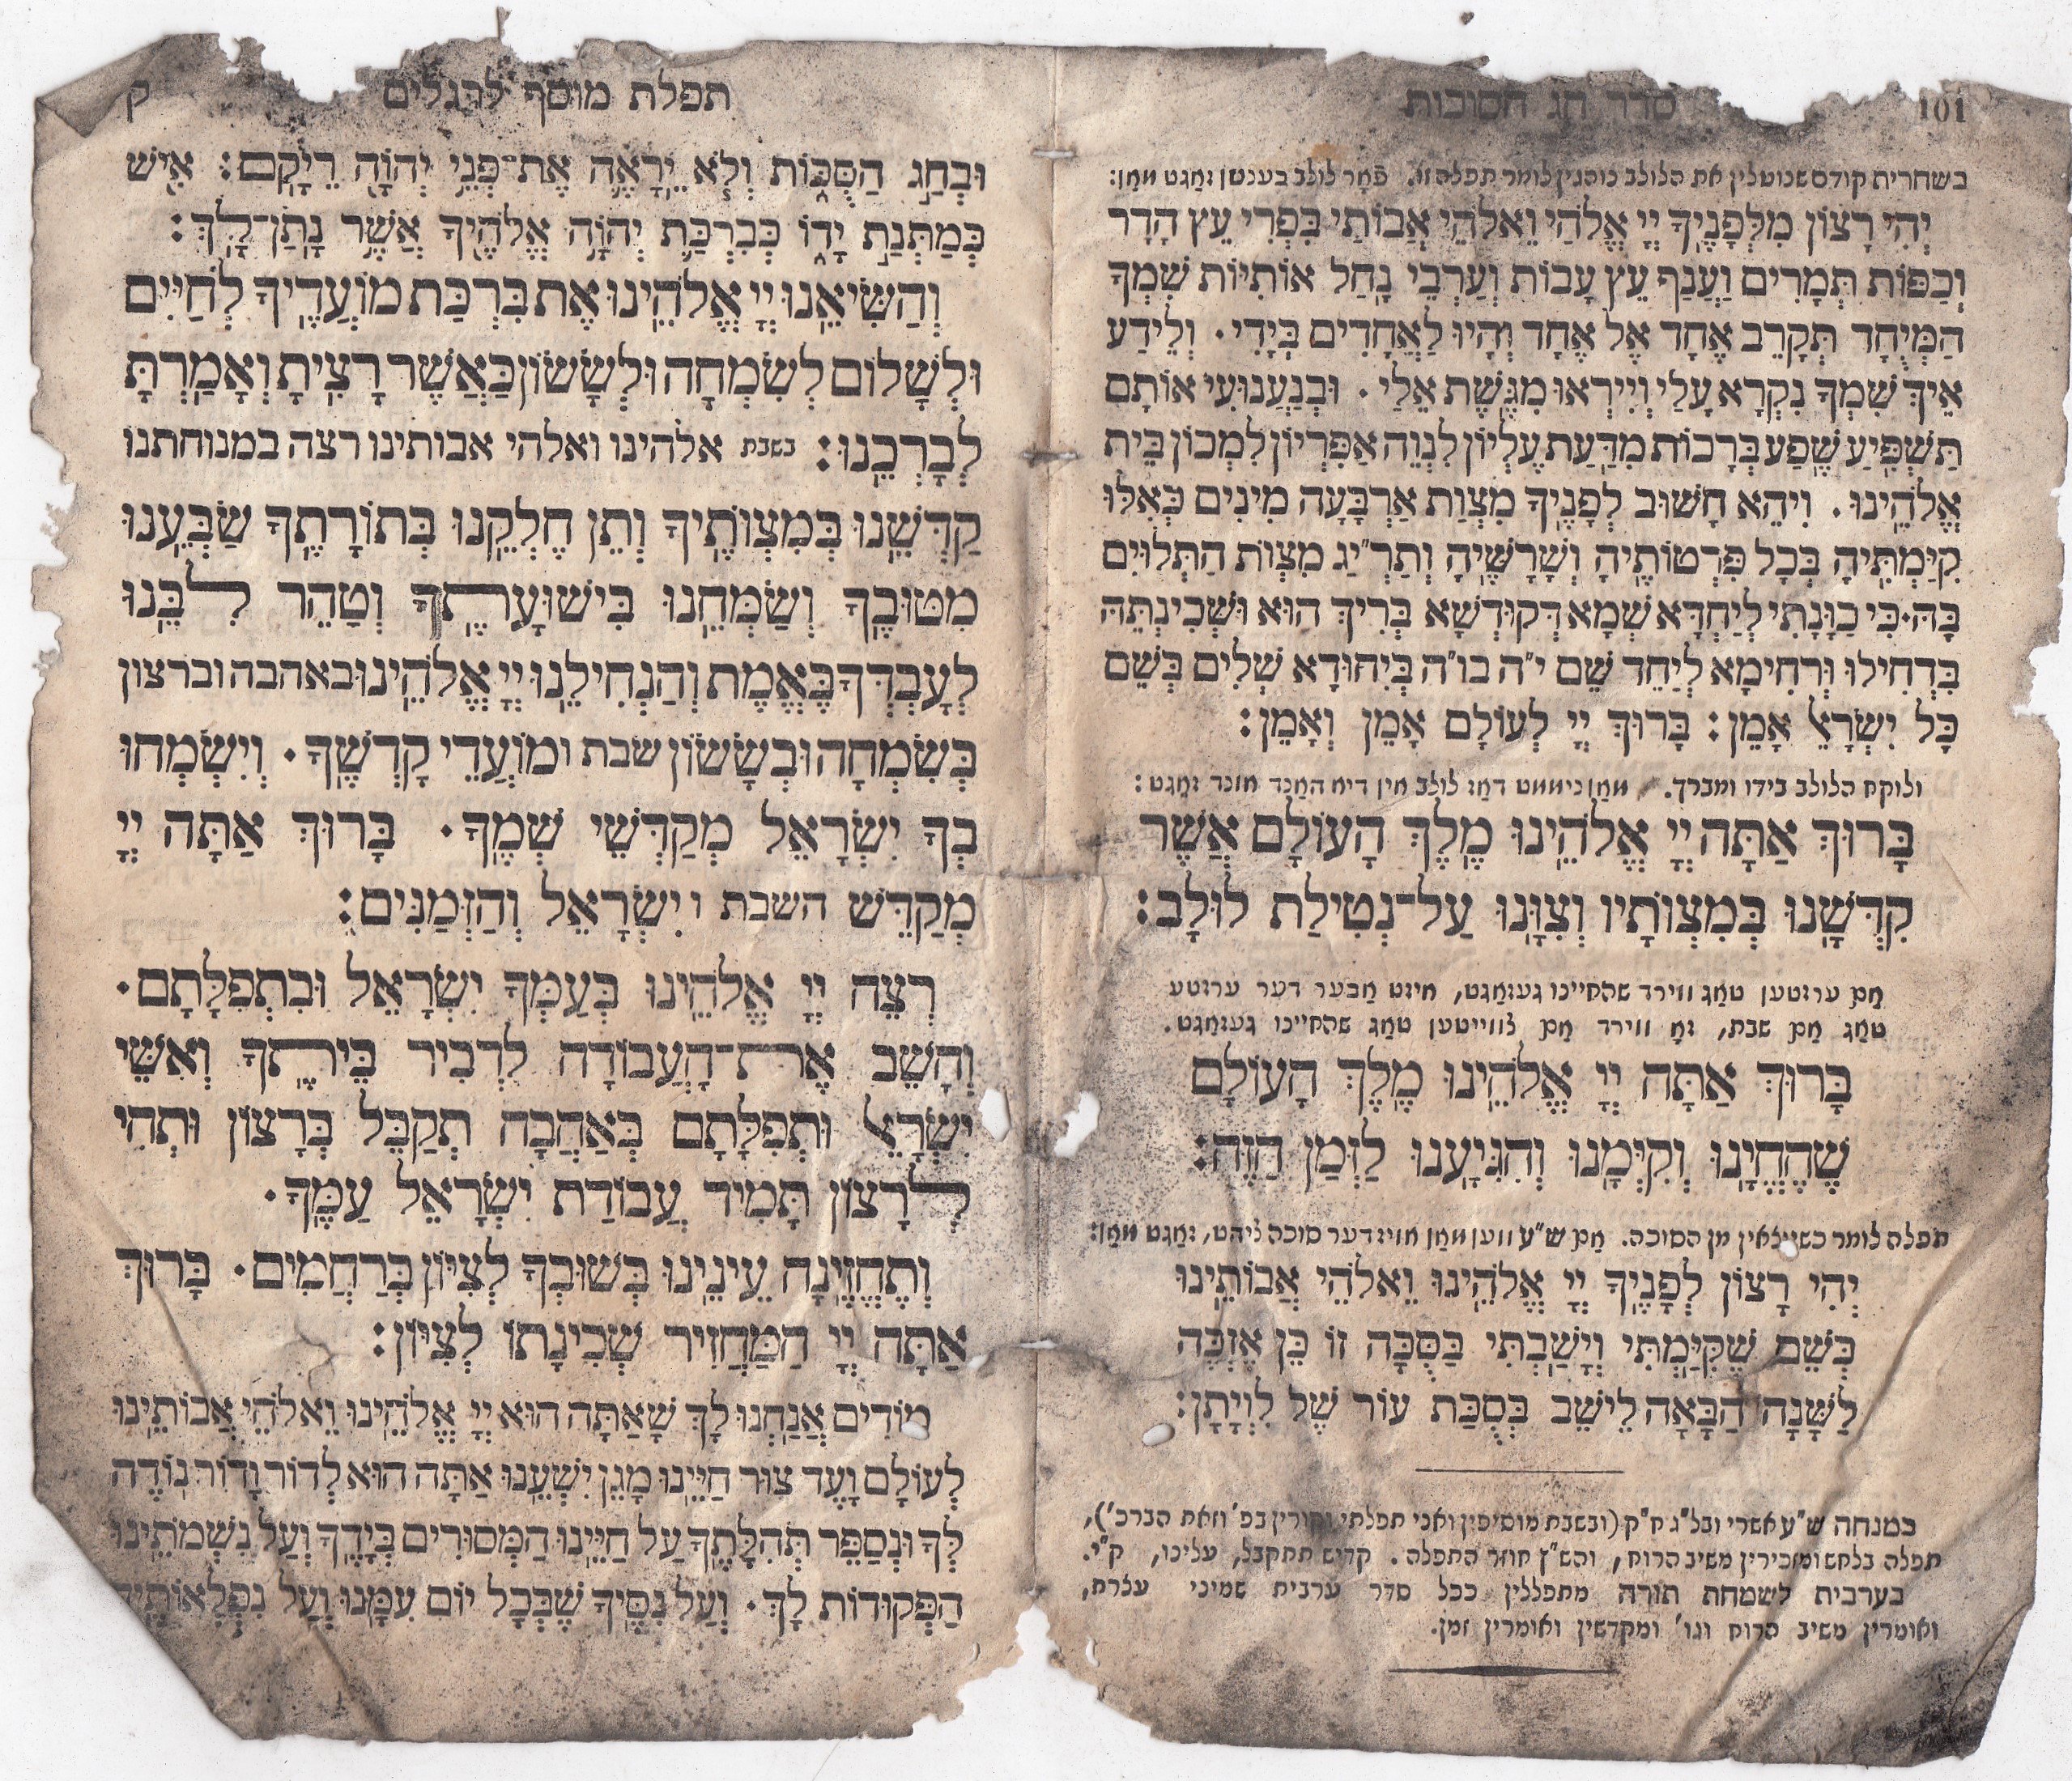 101
סדר חג הסוכות
בשחרית קודם שנוטלין את הלולב נוהגין לומר תפלה זו. פֿאָר לולב בענטשן זאָגט מאַן:
יְהִי רָצוֹן מִלְּפָנֶיךָ יְיָ אֱלֹהַי וֵאלֹהֵי אֲבוֹתַי בִּפְרִי עֵץ הָדָר
וְכַפּוֹת תְּמָרִים וַעֲנַף עֵץ עָבוֹת וְעַרְבֵי נָחַל אוֹתִיּוֹת שִׁמְךָ
הַמְּיֻחָד תְּקָרֵב אֶחָד אֶל אֶחָד וְהָיוּ לַאֲחָדִים בְּיָדִי. וְלֵידַע
אֵיךְ שִׁמְךָ נִקְרָא עָלַי וְיִירְאוּ מִגֶּשֶׁת אֵלָי. וּבְנַעֲנוּעִי אוֹתָם
תַּשְׁפִּיעַ שֶׁפַע בְּרָכוֹת מִדַּעַת עֶלְיוֹן לִנְוֵה אַפִּרְיוֹן לִמְכוֹן בֵּית
אֱלֹהֵינוּ. וִיהֵא חָשׁוּב לְפָנֶיךָ מִצְוַת אַרְבָּעָה מִינִים כְּאִלּוּ
קִיַּמְתִּיהָ בְּכָל פְּרָטוֹתֶיהָ וְשָׁרָשֶׁיהָ וְתַרְיַ״ג מִצְוֹת הַתְּלוּיִם
בָּהּ. כִּי כַוָּנָתִי לְיַחֲדָא שְׁמָא דְּקוּדְשָׁא בְּרִיךְ הוּא וּשְׁכִינְתֵּהּ
בִּדְחִילוּ וּרְחִימָא לְיַחֵד שֵׁם י״ה בו״ה בְּיִחוּדָא שְׁלִים בְּשֵׁם
כָּל יִשְׂרָאֵל אָמֵן: בָּרוּךְ יְיָ לְעוֹלָם אָמֵן וְאָמֵן:
ולוקח הלולב בידו ומברך. מאַן ניממט דאַז לולב אין דיא האַנד אונד זאָגט:
בָּרוּךְ אַתָּה יְיָ אֱלֹהֵינוּ מֶלֶךְ הָעוֹלָם אֲשֶׁר
קִדְּשָׁנוּ בְּמִצְוֹתָיו וְצִוָּנוּ עַל־נְטִילַת לוּלָב:
אַם ערזטען טאַג ווירד שהחיינו געזאַגט, איזט אַבער דער ערזטע
טאַג אַם שבת, זאָ ווירד אַם צווייטען טאַג שהחיינו געזאַגט.
בָּרוּךְ אַתָּה יְיָ אֱלֹהֵינוּ מֶלֶךְ הָעוֹלָם
שֶׁהֶחֱיָנוּ וְקִיְּמָנוּ וְהִגִּיעָנוּ לַזְּמַן הַזֶּה:
תפלה לומר כשיוצאין מן הסוכה. אַם ש״ע ווען מאַן אויז דער סוכה ציהט, זאָגט מאַן:
יְהִי רָצוֹן לְפָנֶיךָ יְיָ אֱלֹהֵינוּ וֵאלֹהֵי אֲבוֹתֵינוּ
כְּשֵׁם שֶׁקִּיַּמְתִּי וְיָשַׁבְתִּי בַּסֻּכָּה זוֹ כֵּן אֶזְכֶּה
לַשָּׁנָה הַבָּאָה לֵישֵׁב בְּסֻכַּת עוֹר שֶׁל לִוְיָתָן:
במנחה ש״ע אשרי ובל״ג ח״ק (ובשבת מוסיפין ואני תפלתי וקורין בפ׳ וזאת הברכ׳),
תפלה בלחש ומזכירין משיב הרוח, והש״ץ חוזר התפלה. קדיש תתקבל, עלינו, ק״י.
בערבית לשמחת תורה מתפללין ככל סדר ערבית שמיני עצרת,
ואומרין משיב הרוח וגו׳ ומקדשין ואומרין זמן.
תפלת מוסף לרגלים
ק
וּבְחַג הַסֻּכּוֹת וְלֹא יֵרָאֶה אֶת־פְּנֵי יְהוָה רֵיקָם: אִישׁ
כְּמַתְּנַת יָדוֹ כְּבִרְכַּת יְהוָה אֱלֹהֶיךָ אֲשֶׁר נָתַן־לָךְ:
וְהַשִּׂיאֵנוּ יְיָ אֱלֹהֵינוּ אֶת בִּרְכַּת מוֹעֲדֶיךָ לְחַיִּים
וּלְשָׁלוֹם לְשִׂמְחָה וּלְשָׂשׂוֹן כַּאֲשֶׁר רָצִיתָ וְאָמַרְתָּ
לְבָרְכֵנוּ: בשבת אלהינו ואלהי אבותינו רצה במנוחתנו
קַדְּשֵׁנוּ בְּמִצְוֹתֶיךָ וְתֵן חֶלְקֵנוּ בְּתוֹרָתֶךָ שַׂבְּעֵנוּ
מִטּוּבֶךָ וְשַׂמְּחֵנוּ בִּישׁוּעָתֶךָ וְטַהֵר לִבֵּנוּ
לְעָבְדְּךָ בֶּאֱמֶת וְהַנְחִילֵנוּ יְיָ אֱלֹהֵינוּ באהבה וברצון
בְּשִׂמְחָה וּבְשָׂשׂוֹן שבת וּמוֹעֲדֵי קָדְשֶׁךָ. וְיִשְׂמְחוּ
בְךָ יִשְׂרָאֵל מְקַדְּשֵׁי שְׁמֶךָ. בָּרוּךְ אַתָּה יְיָ
מְקַדֵּשׁ השבת ו יִשְׂרָאֵל וְהַזְּמַנִּים:
רְצֵה יְיָ אֱלֹהֵינוּ בְּעַמְּךָ יִשְׂרָאֵל וּבִתְפִלָּתָם.
וְהָשֵׁב אֶת־הָעֲבוֹדָה לִדְבִיר בֵּיתֶךָ וְאִשֵּׁי
יִשְׂרָאֵל וּתְפִלָּתָם בְּאַהֲבָה תְקַבֵּל בְּרָצוֹן וּתְהִי
לְרָצוֹן תָּמִיד עֲבוֹדַת יִשְׂרָאֵל עַמֶּךָ.
וְתֶחֱזֶינָה עֵינֵינוּ בְּשׁוּבְךָ לְצִיּוֹן בְּרַחֲמִים. בָּרוּךְ
אַתָּה יְיָ הַמַּחֲזִיר שְׁכִינָתוֹ לְצִיּוֹן:
מוֹדִים אֲנַחְנוּ לָךְ שָׁאַתָּה הוּא יְיָ אֱלֹהֵינוּ וֵאלֹהֵי אֲבוֹתֵינוּ
לְעוֹלָם וָעֶד צוּר חַיֵּינוּ מָגֵן יִשְׁעֵנוּ אַתָּה הוּא לְדוֹר וָדוֹר נוֹדֶה
לְּךָ וּנְסַפֵּר תְּהִלָּתֶךָ עַל חַיֵּינוּ הַמְּסוּרִים בְּיָדֶךָ וְעַל נִשְׁמֹתֵינוּ
הַפְּקוּדוֹת לָךְ. וְעַל נִסֶּיךָ שֶׁבְּכָל יוֹם עִמָּנוּ וְעַל נִפְלְאוֹתֶיךָ